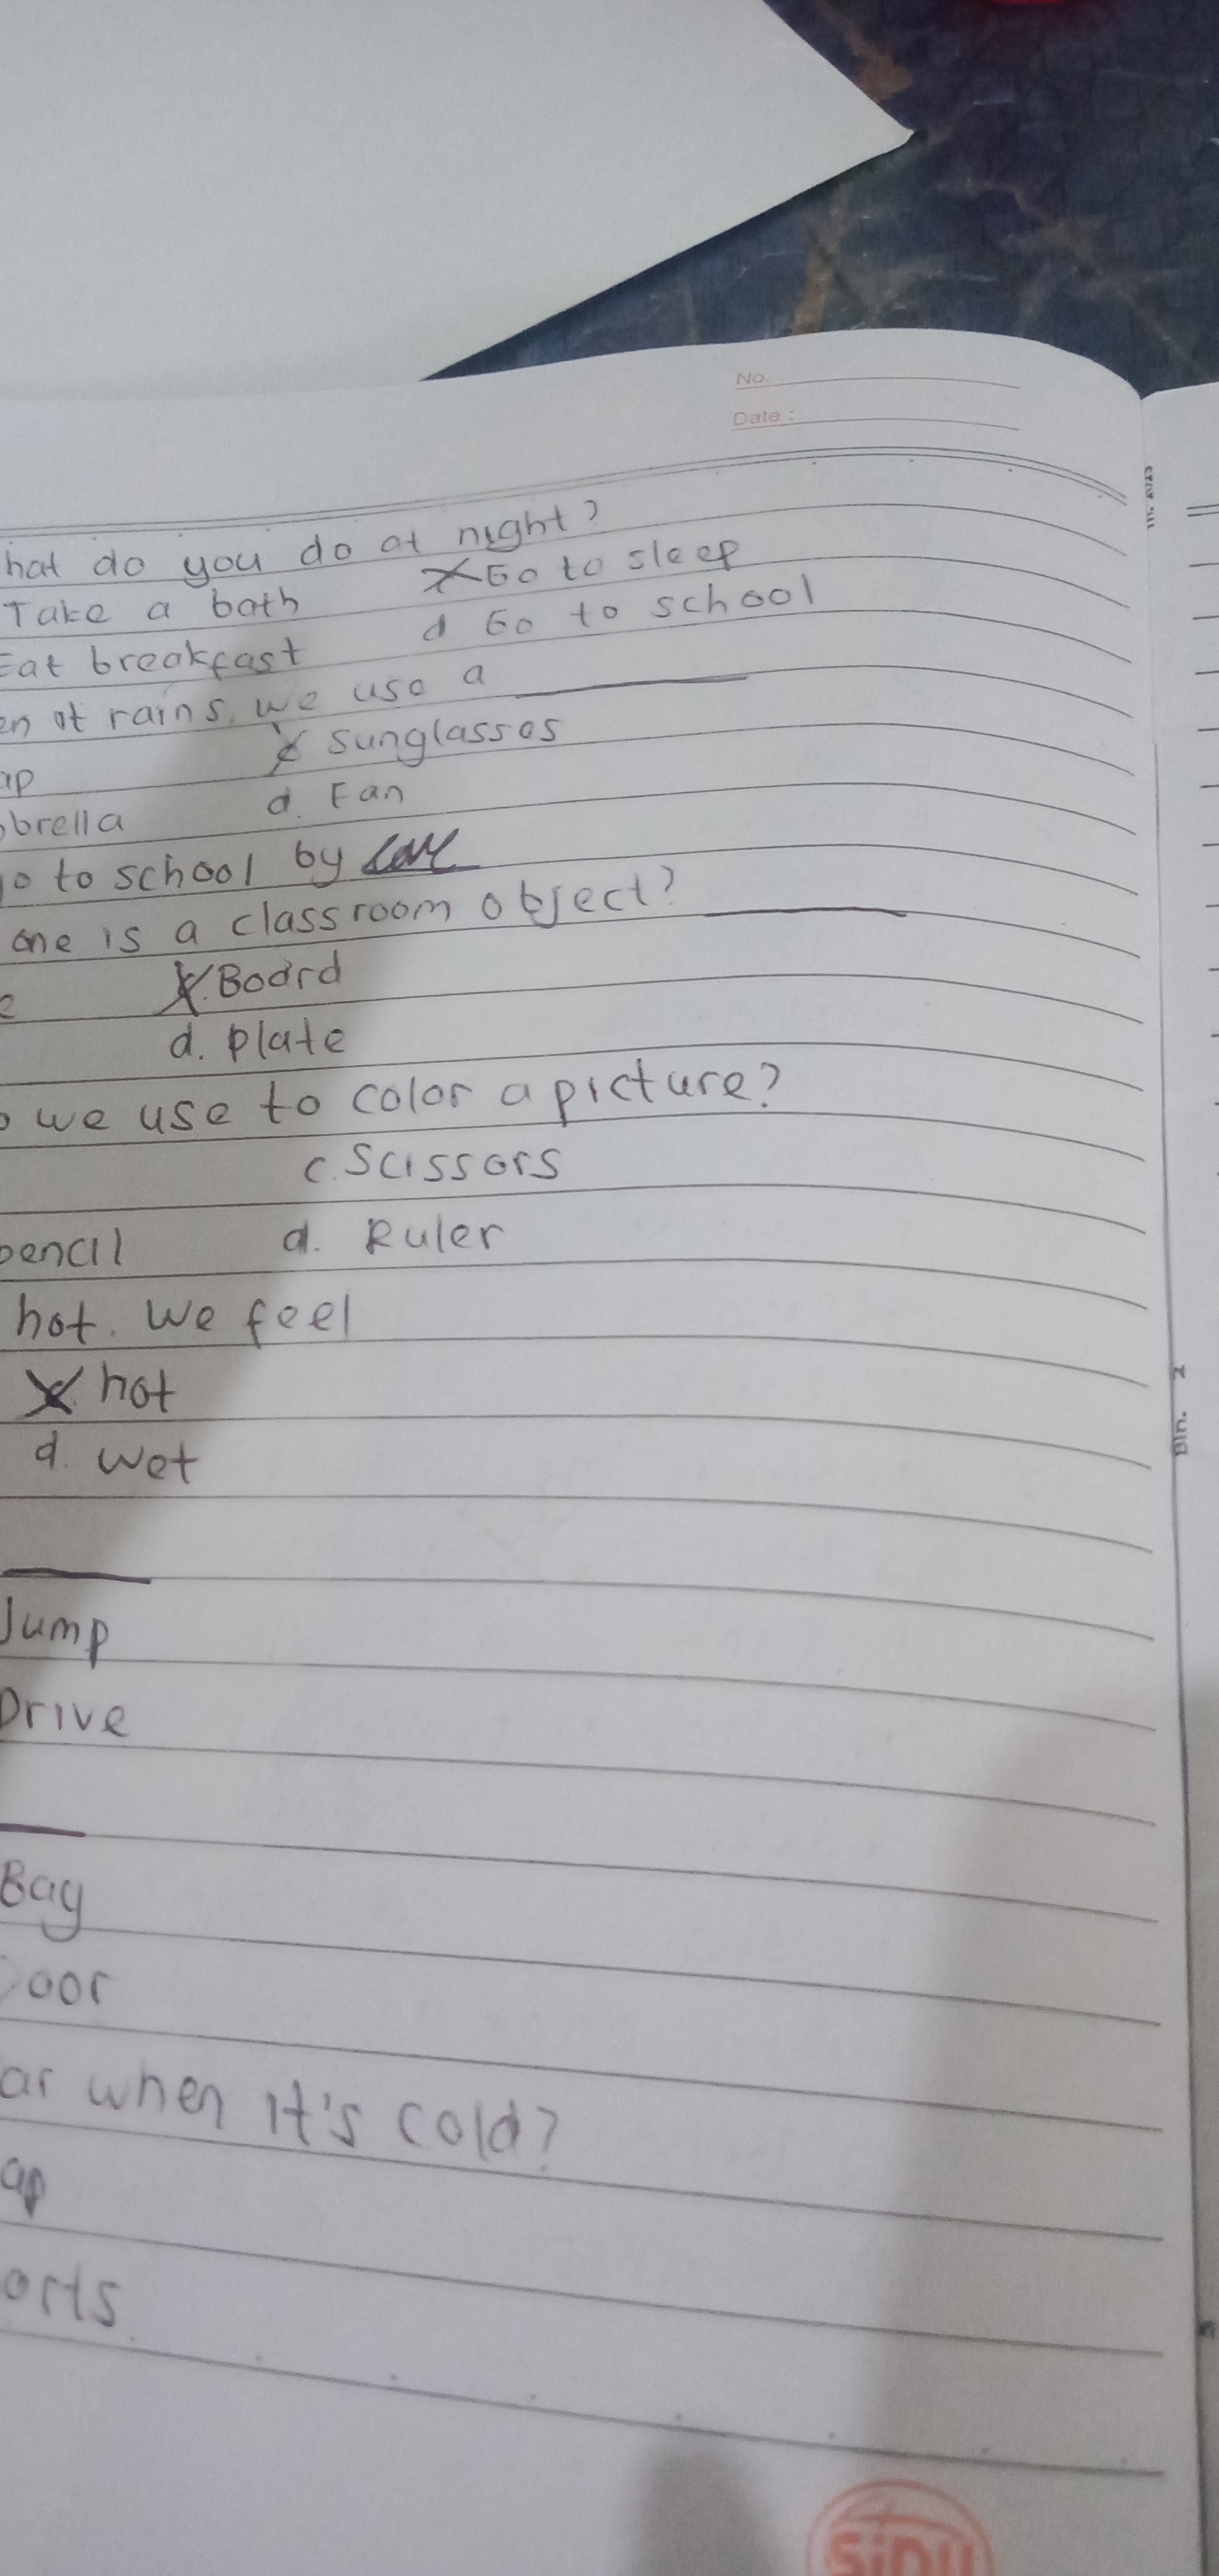 No.
Date :
hat do you do at night?
Take a bath Go to sleep
Eat breakfast d Go to school
en it rains, we use a
ap Sunglasses
brella d. Fan
go to school by
one is a classroom object?
e Board
d. plate
o we use to color a picture?
c. Scissors
pencil d. Ruler
hot. we feel
hot
d. wet
Jump
Drive
Bag
Door
ar when it's cold?
ap
orts
SIDU